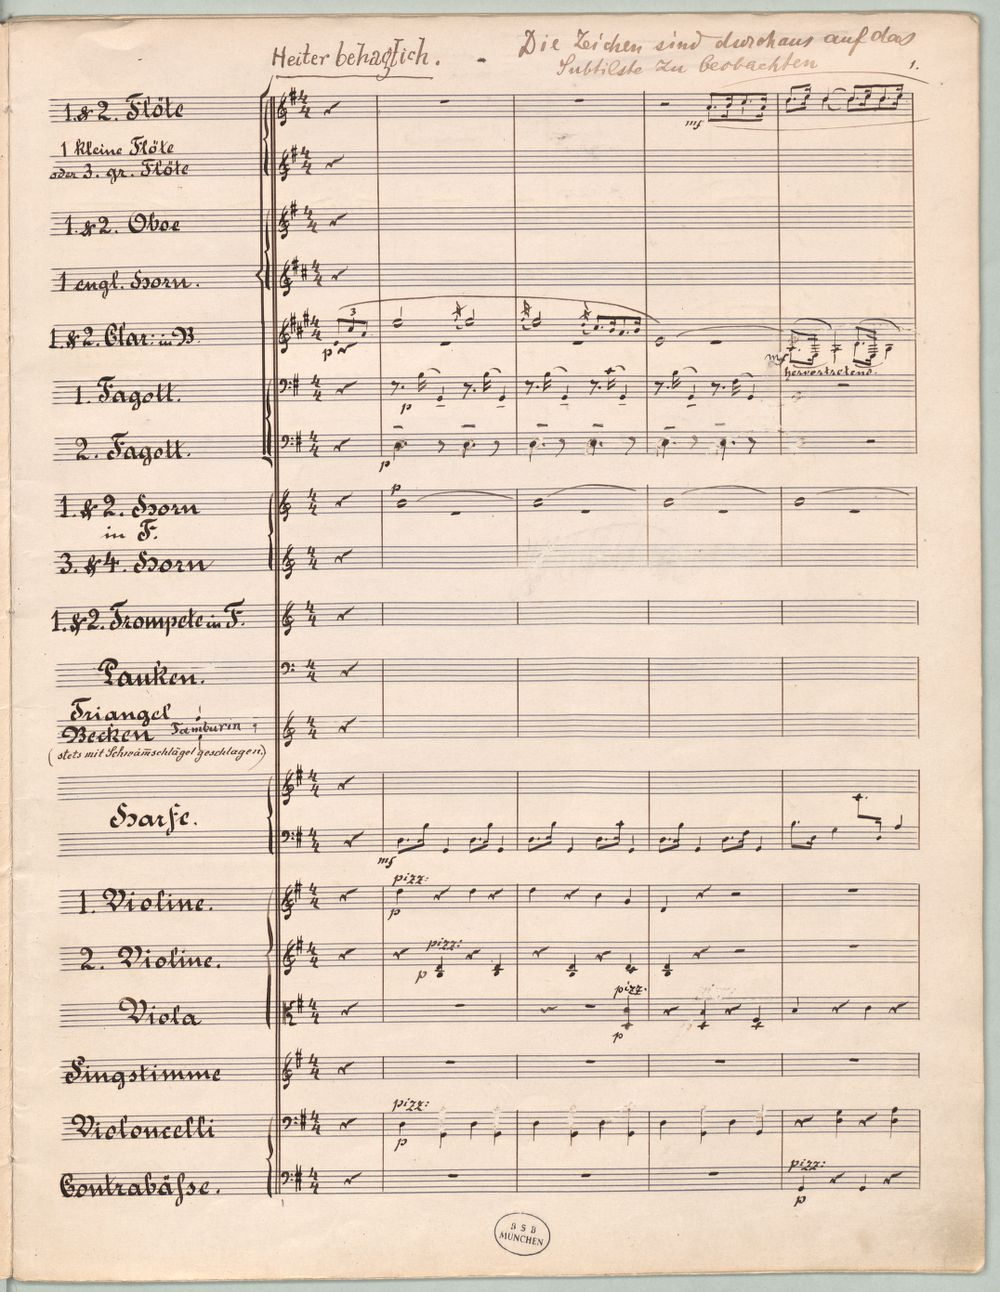 Heiter behaglich.
Die Zeichen sind durchaus auf das
Subtilste zu beobachten
1.
1. & 2. Flöte
mf
1 kleine Flöte
oder 3. gr. Flöte
1. & 2. Oboe
1 engl. Horn.
1. & 2. Clar: in B.
3
p
mf
hervortretend.
1. Fagott.
p
2. Fagott.
p
1. & 2. Horn
in F.
p
3. & 4. Horn
1. & 2. Trompete in F.
Pauken.
Triangel
Becken Tamburin
(stets mit Schwam̄schlägel geschlagen)
Harfe.
mf
1. Violine.
pizz:
p
2. Violine.
pizz:
p
Viola
pizz.
p
Singstimme
Violoncelli
pizz:
p
Contrabässe.
pizz:
p
BSB
MÜNCHEN